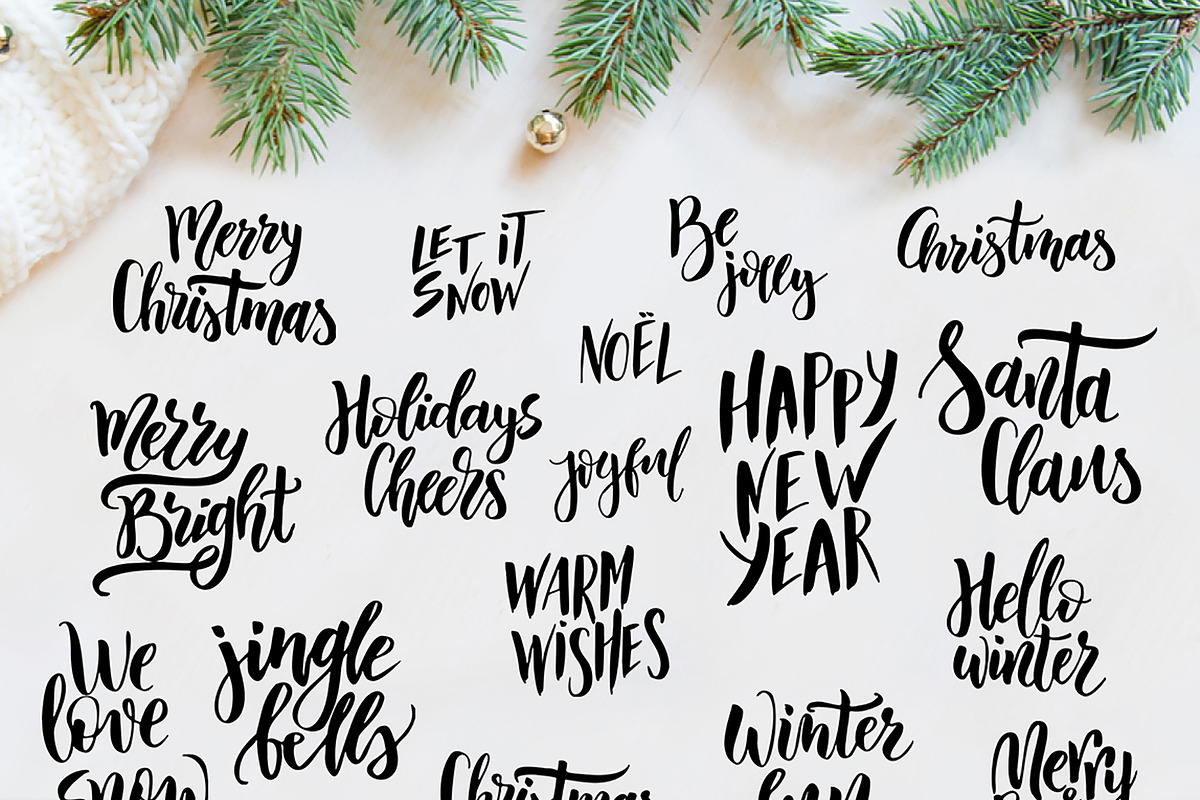 Merry
Christmas
LET iT
SNOW
Be
jolly
Christmas
NOËL
Santa
Claus
Merry
Bright
Holidays
Cheers
joyful
HAPPY
NEW
YEAR
WARM
WiSHES
Hello
winter
We
love
snow
jingle
bells
Christmas
Winter
Merry